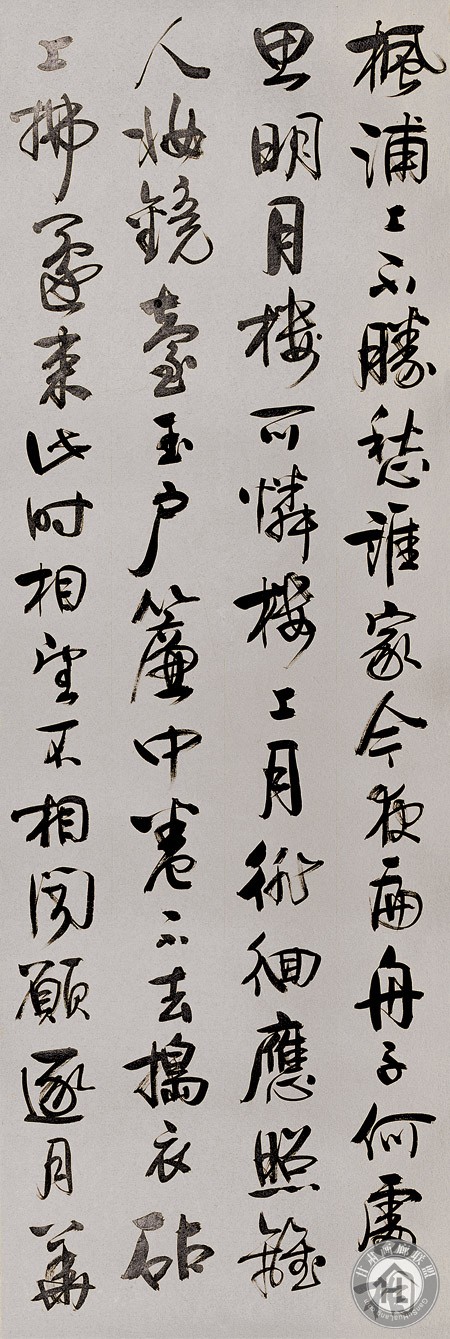 楓浦上不勝愁誰家今夜扁舟子何處相
思明月樓可憐樓上月徘徊應照離
人妝鏡臺玉戶簾中卷不去搗衣砧
上拂還來此時相望不相聞願逐月華